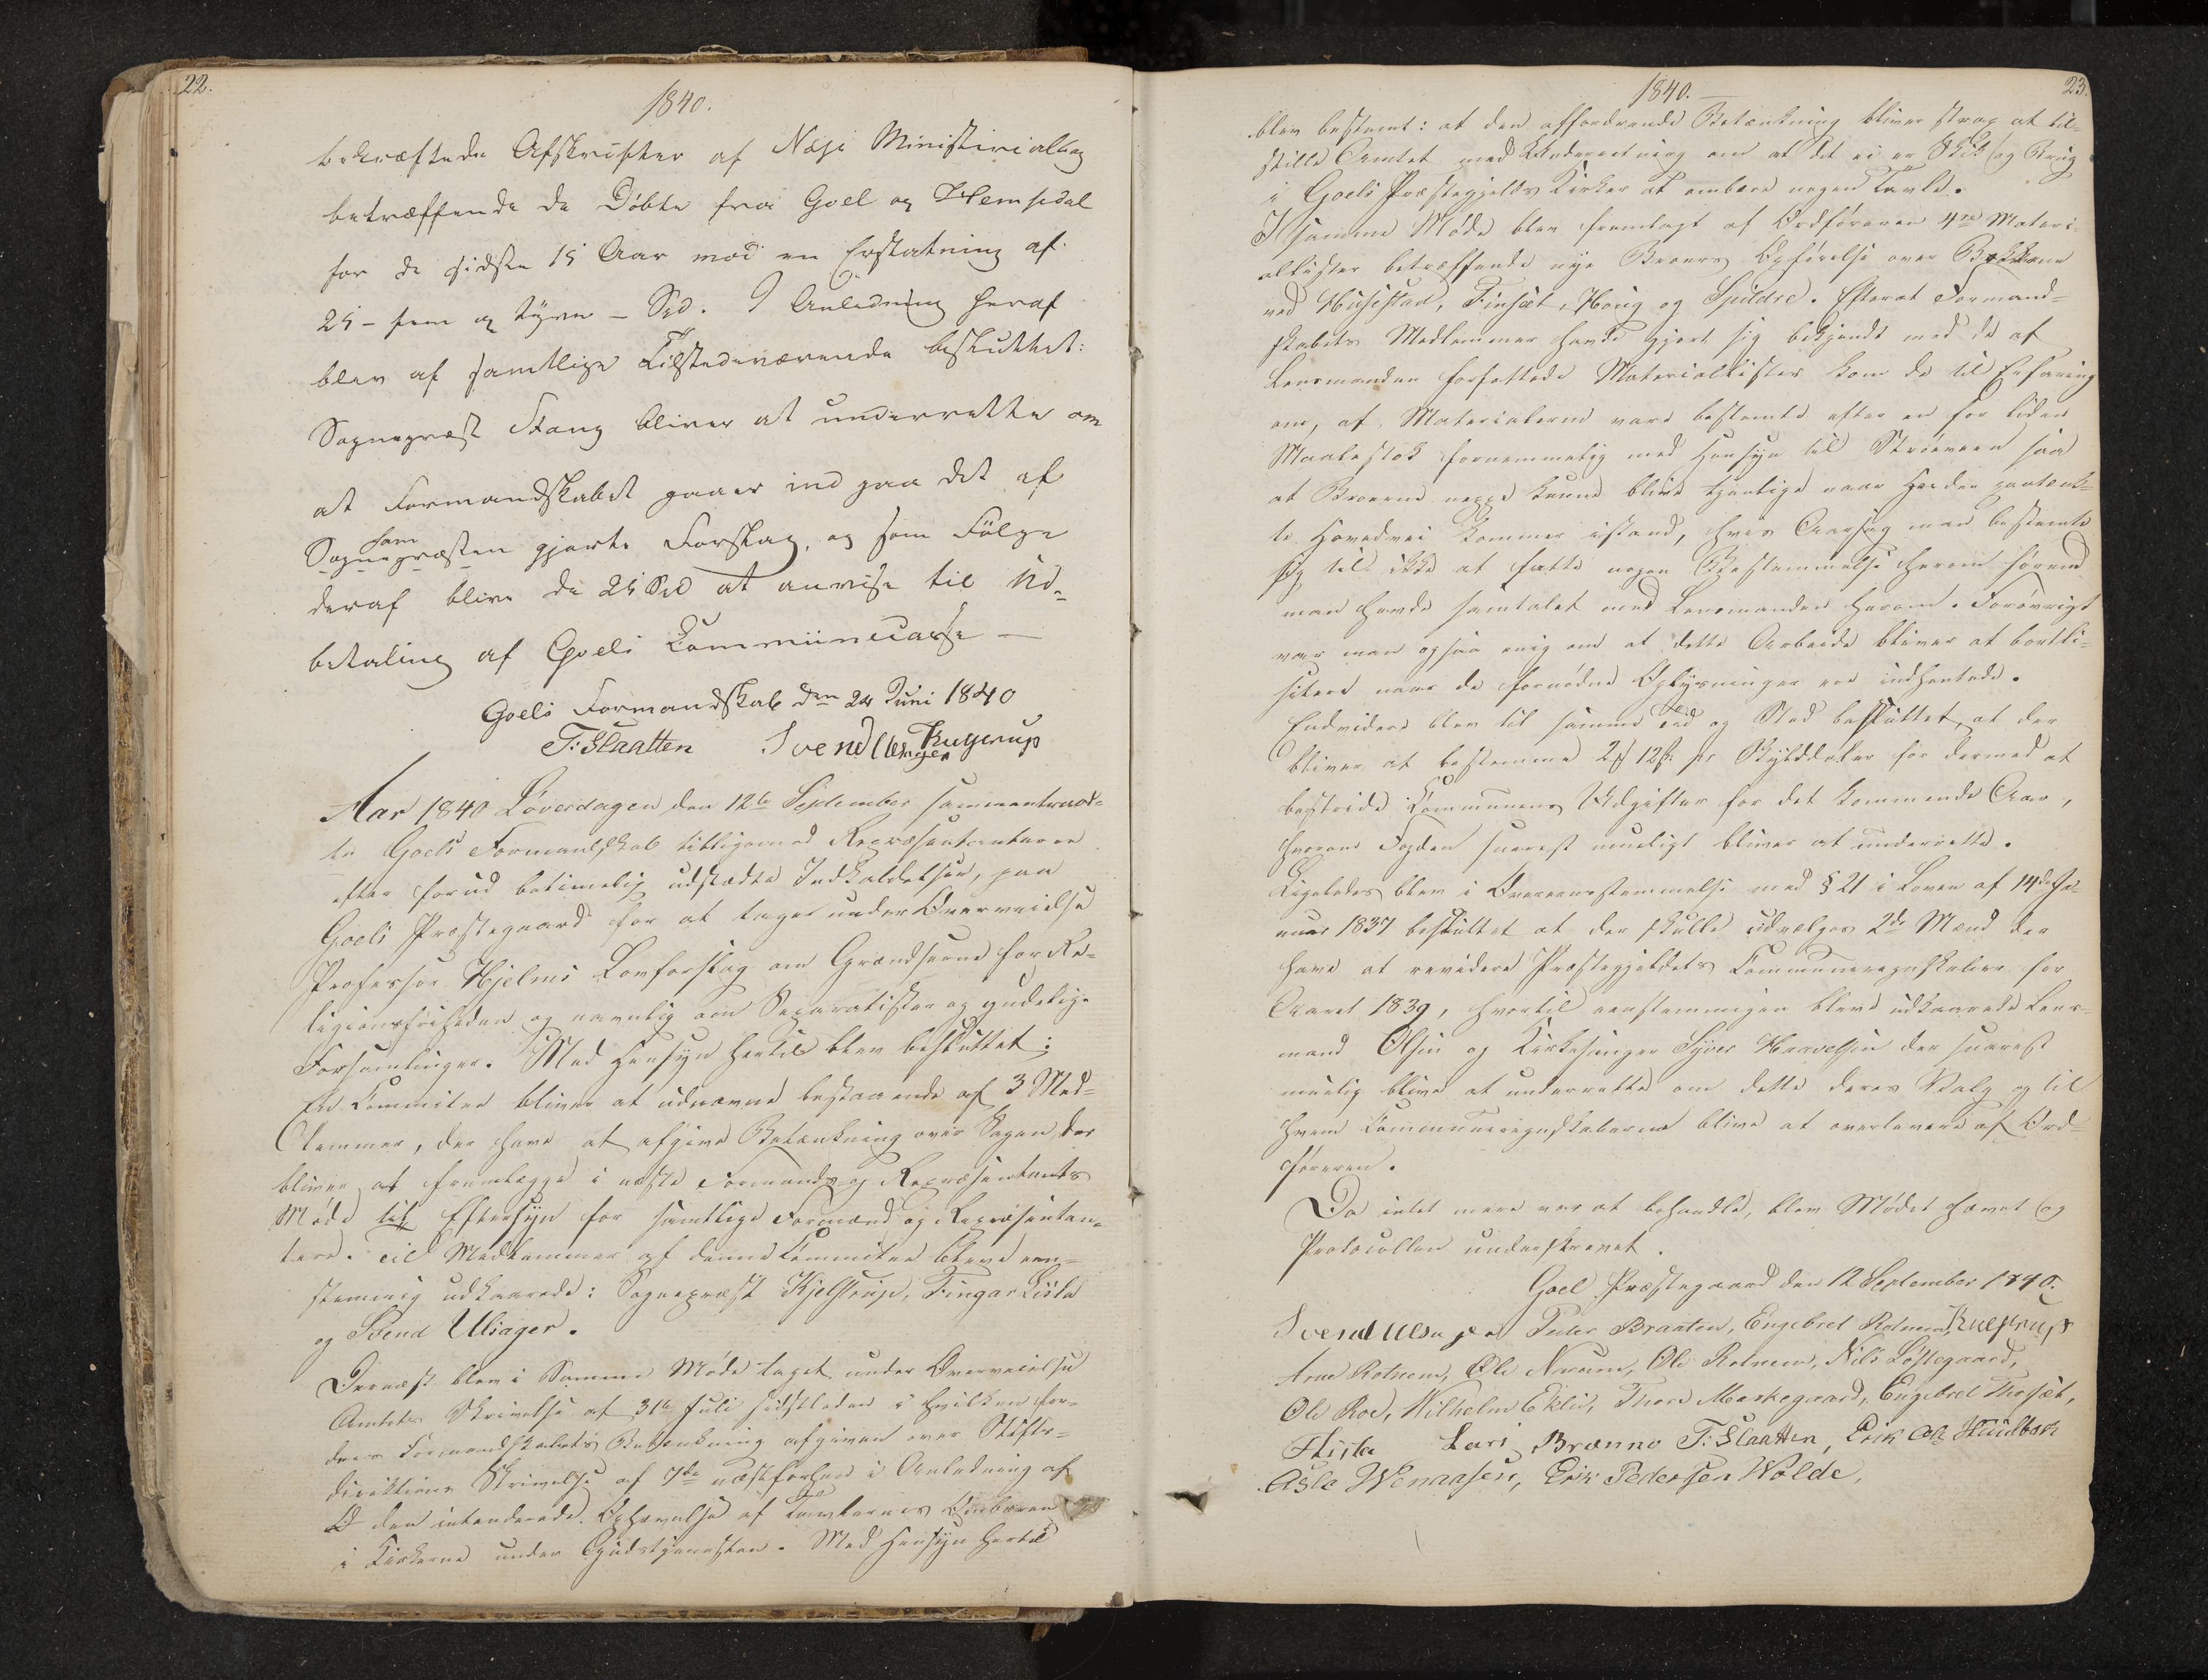 22.
1840.
bekræftede Afskrifter af Næss Ministerialbog
betræffende de Döbte fra Goel og Hemsedal
for de sidste 15 Aar mod en Erstatning af
25 - fem og tyve - Spd. I Anledning heraf
blev af samtlige Tilstedeværende besluttet:
Sognepræst Stang bliver at underrette om
at Formandskabet gaaer ind paa det af
ham
Sognepræsten gjorte Forslag, og som Fölge
deraf blive de 25 Spd at anvise til Ud-
betaling af Goels Kommunecasse —
Goels Formandskab den 24 Juni 1840
T. Slaatten Svend Ulsager
Aar 1840 Løverdagen den 12te September sammentraad-
te Goels Formandskab tilligemed Repræsentanterne
efter forud betimelig udstædte Indkaldelser, paa
Goels Præstegaard for at tage under Overveielse
Professor Hjelms Lovforslag om Grændserne for Re-
ligionsfriheden og navnlig om Separatister og gudelige
Forsamlinger. Med Hensyn hertil blev besluttet:
En Committee bliver at udnævne bestaaende af 3 Med-
lemmer, der have at afgive Betænkning over Sagen, der
bliver at fremlægge i næste Formands og Repræsentants
Møde til Eftersyn for samtlige Formænd og Repræsentan-
tere. Til Medlemmer af denne Committee bleve een-
stemmig udkaarede: Sognepræst Kjelstrup, Fingar
og Svend Ulsager.
Dernæst blev i Samme Møde taget under Overveielse
Amtets Skrivelse af 31te Juli sidstleden i hvilken for-
dres Formandskabets Betænkning afgiven over Stifts-
direktionens Skrivelse af 7de næstforhen i Anledning af
den intenderede Ophævelse af Tavlernes Ombæren
i Kirkerne under Gudstjenesten. Med Hensyn hertil
1840.
23.
blev bestemt: at den affordrende Betænkning bliver strax at til-
stille Amtet med Underretning om at det ei er Skik og Brug
i Goels Præstegjelds Kirker at ombære nogen Tavle.
I samme Møde blev fremlagt af Ordføreren 4re Materi-
allister betræffende nye Broers Opførelse over Bækkene
ved Husestad, Finsæt, Houg og Spildre. Efterat Formand-
skabets Medlemmer havde gjort sig bekjendt med de af
Lensmanden forfattede Materiallister kom de til Erfaring
om, at Materialerne vare bestemte efter en for liden
Maalestok fornemmelig med Hensyn til Strøeveen saa
at Broerne neppe kunne blive tjenlige naar den paatænk-
te Hovedvei kommer istand, hvis Aarsag man bestemte
sig til ikke at fatte nogen Bestemmelse herom førend
man havde samtalet med Lensmanden herom. Forøvrigt
var man ogsaa enig om at dette Arbeide bliver at bortli-
sitere naar de fornødne Oplysninger ere indhentede.
Endvidere blev til samme Tid og Sted besluttet, at der
bliver at bestemme 12 ß pr Skylddaler for dermed at
bestride Communens Udgifter for det kommende Aar,
hvorom Fogden snarest mueligt bliver at underrette.
Ligeledes blev i Overeensstemmelse med § 21 i Loven af 14de Ja-
nuar 1837 besluttet at der skulle udvælges 2de Mænd der
have at revidere Præstegjeldets Communeregnskaber for
Aaret 1839, hvortil eenstemmigen bleve udkaarede Lens-
mand Olsen og Kirkesanger Syver Haavelsen der snarest
muelig blive at underrette om dette deres Valg og til
hvem Communeregnskaberne blive at overlevere af Ord-
føreren.
Da intet mere var at behandle, blev Mødet hævet og
Protocollen underskrevet.
Goel Præstegaard den 12 September 1840.
Svend Ulsager Peder Braaten, Engebret Rotneim, Kjelstrup
Arne Rotneim, Ole Ole Rotneim, Nils Løstegaard,
Ole Roe, Wilhelm Eklid, Thore Markegaard, Engebret Thorsæt,
Lars Brænno T. Slaatten, Erik Huulbak
Asle Erik Pedersen Wolde,